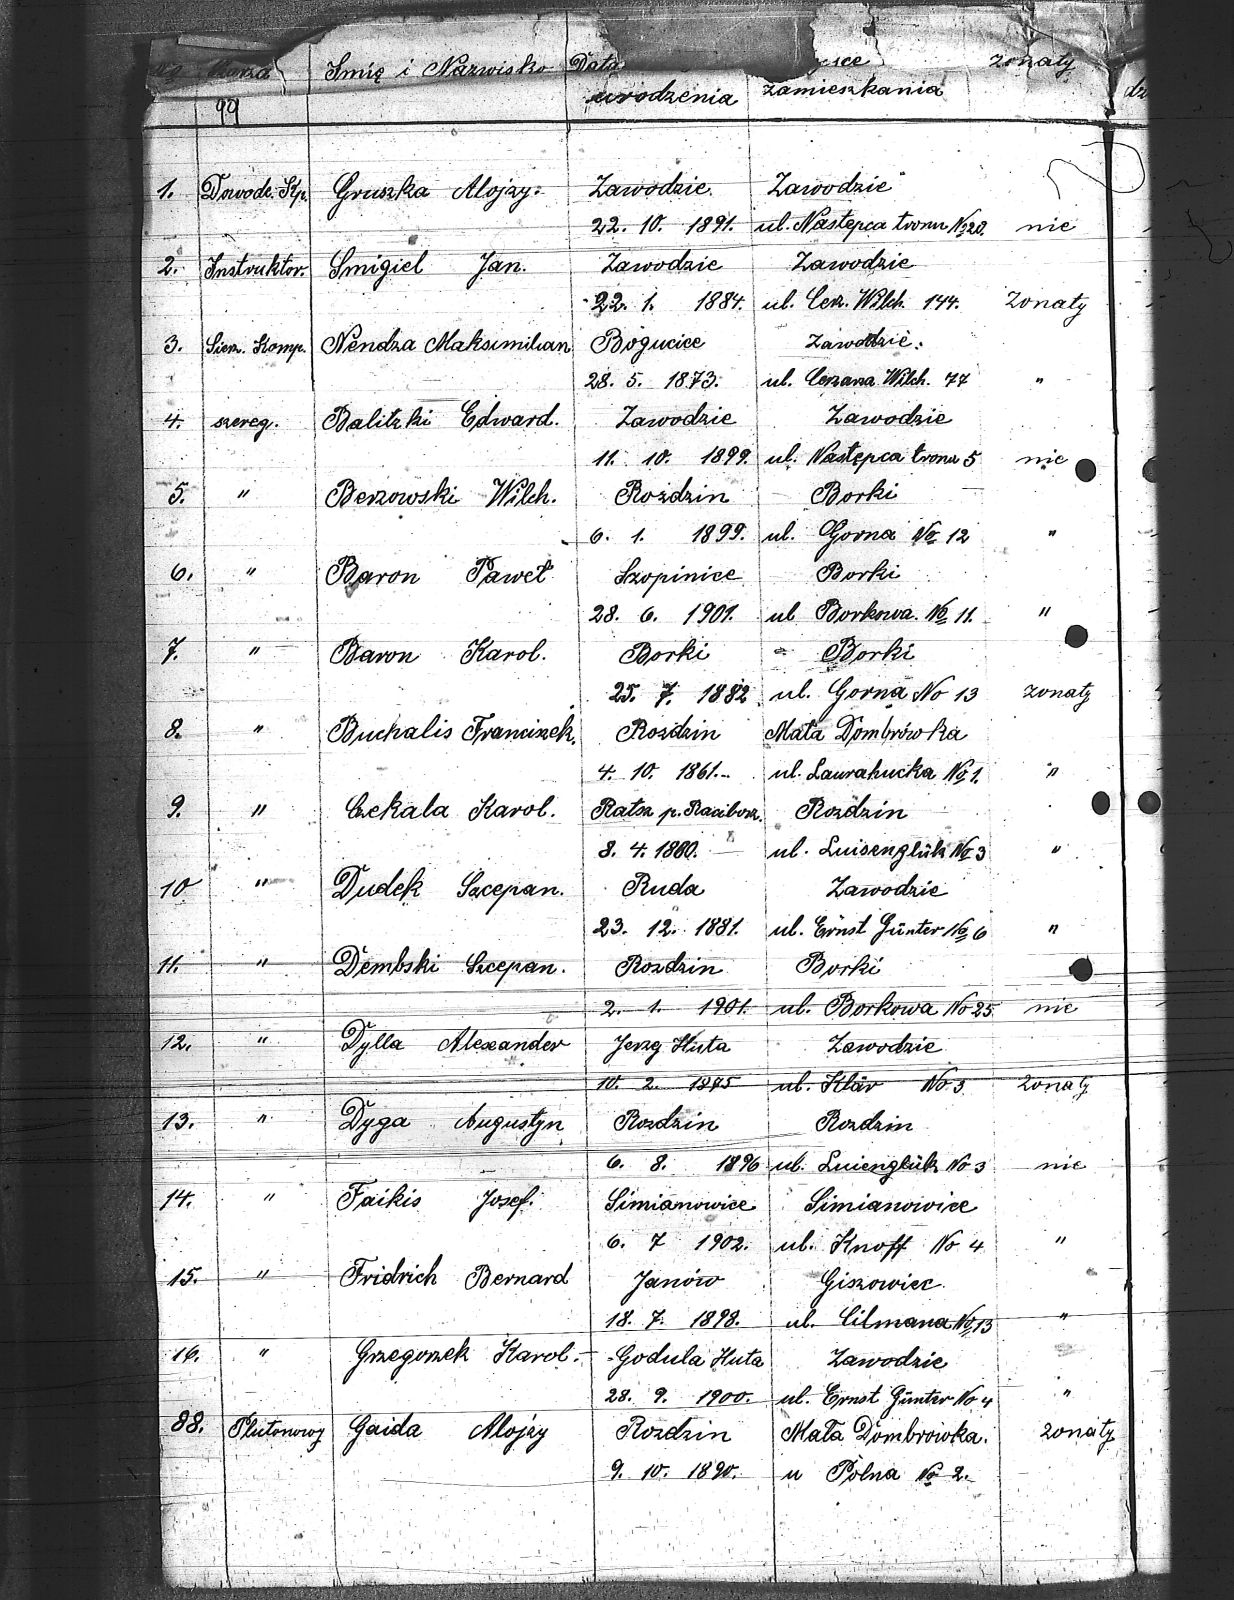 Imię i Nazwisko Data zonaty
99 urodzenia zamieszkania
1. Dowodc. Kp. Gruszka Alojzy. Zawodzie Zawodzie
22. 10. 1891. ul. Nastepca tronu No 20. nie
2. Instruktor. Smigiel Jan. Zawodzie Zawodzie
22. 1. 1884. ul. Cerz. Wilch. 144. Zonaty
3. Sierz. Komp. Nendza Maksimilian Bogucice Zawodzie.
28. 5. 1873. ul. Cezana Wilch. 77 "
4. szereg. Balitzki Edward. Zawodzie Zawodzie
11. 10. 1899. ul. Nastepca tronu 5 nie
5. " Berzowski Wilch. Rozdzin Borki
6. 1. 1899. ul. Gorna No 12 "
6. " Baron Paweł Szopinice Borki
28. 6. 1901. ul Borkowa. No 11. "
7. " Baron Karol. Borki Borki
25. 7. 1882 ul. Gorna No 13 zonaty
8. " Buchalis Franciszek. Rozdzin Mała Dombrówka
4. 10. 1861. ul. Laurahucka No 1. "
9. " Czekala Karol. Ratsz p. Raciborz. Rozdzin
8. 4. 1880. ul. Luisenglük No 3 "
10 " Dudek Szczepan. Ruda Zawodzie
23. 12. 1881. ul. Ernst Günter No 6 "
11. " Dembski Szczepan. Rozdzin Borki
2. 1. 1901. ul. Borkowa No 25 nie
12. " Dylla Alexander Jerzg Huta Zawodzie
10. 2. 1875 ul. Klär No 3 zonaty
13. " Dyga Augustyn Rozdzin Rozdzin
6. 8. 1896 ul. Luienglük No 3 nie
14. " Faikis Josef. Simianowice Simianowice
6. 7 1902. ul. Knoff No 4 "
15. " Fridrich Bernard Janów Giszowiec
18. 7. 1898. ul. Cilmana No 13 "
16. " Grzegorzek Karol. Godula Huta Zawodzie
28. 9. 1900. ul. Ernst Günter No 4 "
88. Plutonowy Gaida Alojzy Rozdzin Mała Dombrowka. zonaty
9. 10. 1890. u Polna No 2.